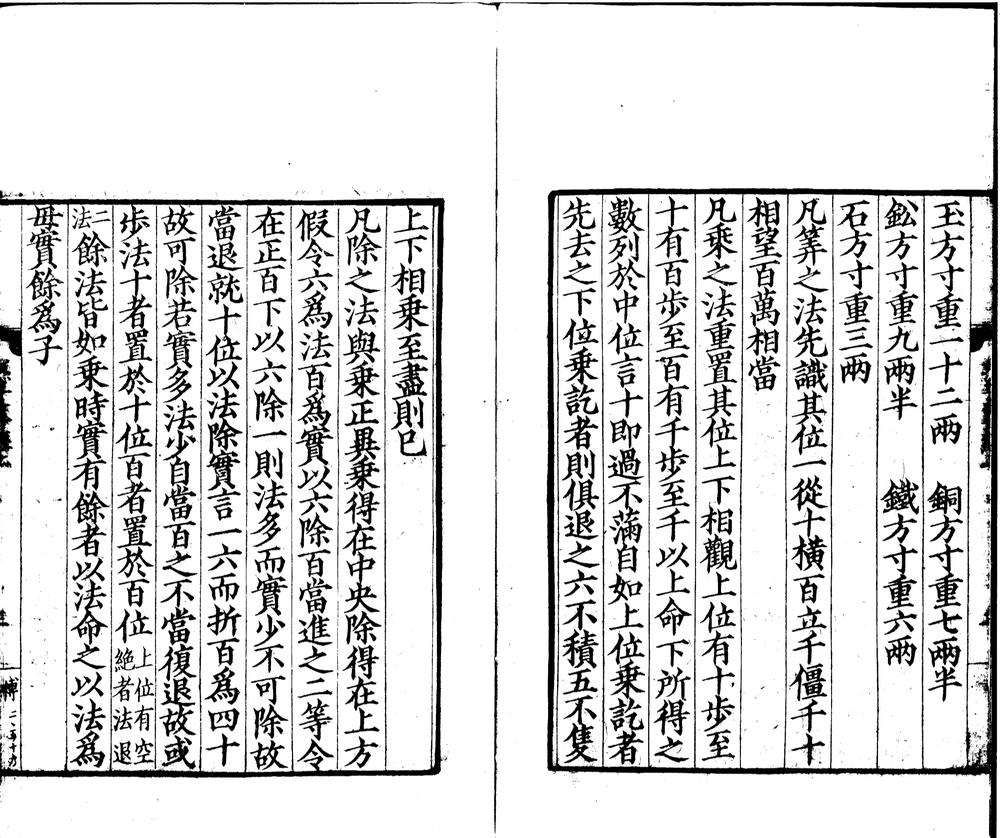 玉方寸重一十二兩　銅方寸重七兩半
鈆方寸重九兩半　鐵方寸重六兩
石方寸重三兩
凡筭之法先識其位一從十橫百立千僵千十
相望百萬相當
凡乗之法重置其位上下相觀上位有十步至
十有百步至百有千步至千以上命下所得之
數列於中位言十即過不滿自如上位乗訖者
先去之下位乗訖者則俱退之六不積五不隻
上下相乗至盡則已
凡除之法與乗正異乗得在中央除得在上方
假令六爲法百爲實以六除百當進之二等令
在正百下以六除一則法多而實少不可除故
當退就十位以法除實言一六而折百爲四十
故可除若實多法少自當百之不當復退故或
步法十者置於十位百者置於百位上位有空絶者法退
二法餘法皆如乗時實有餘者以法命之以法爲
毋實餘爲子